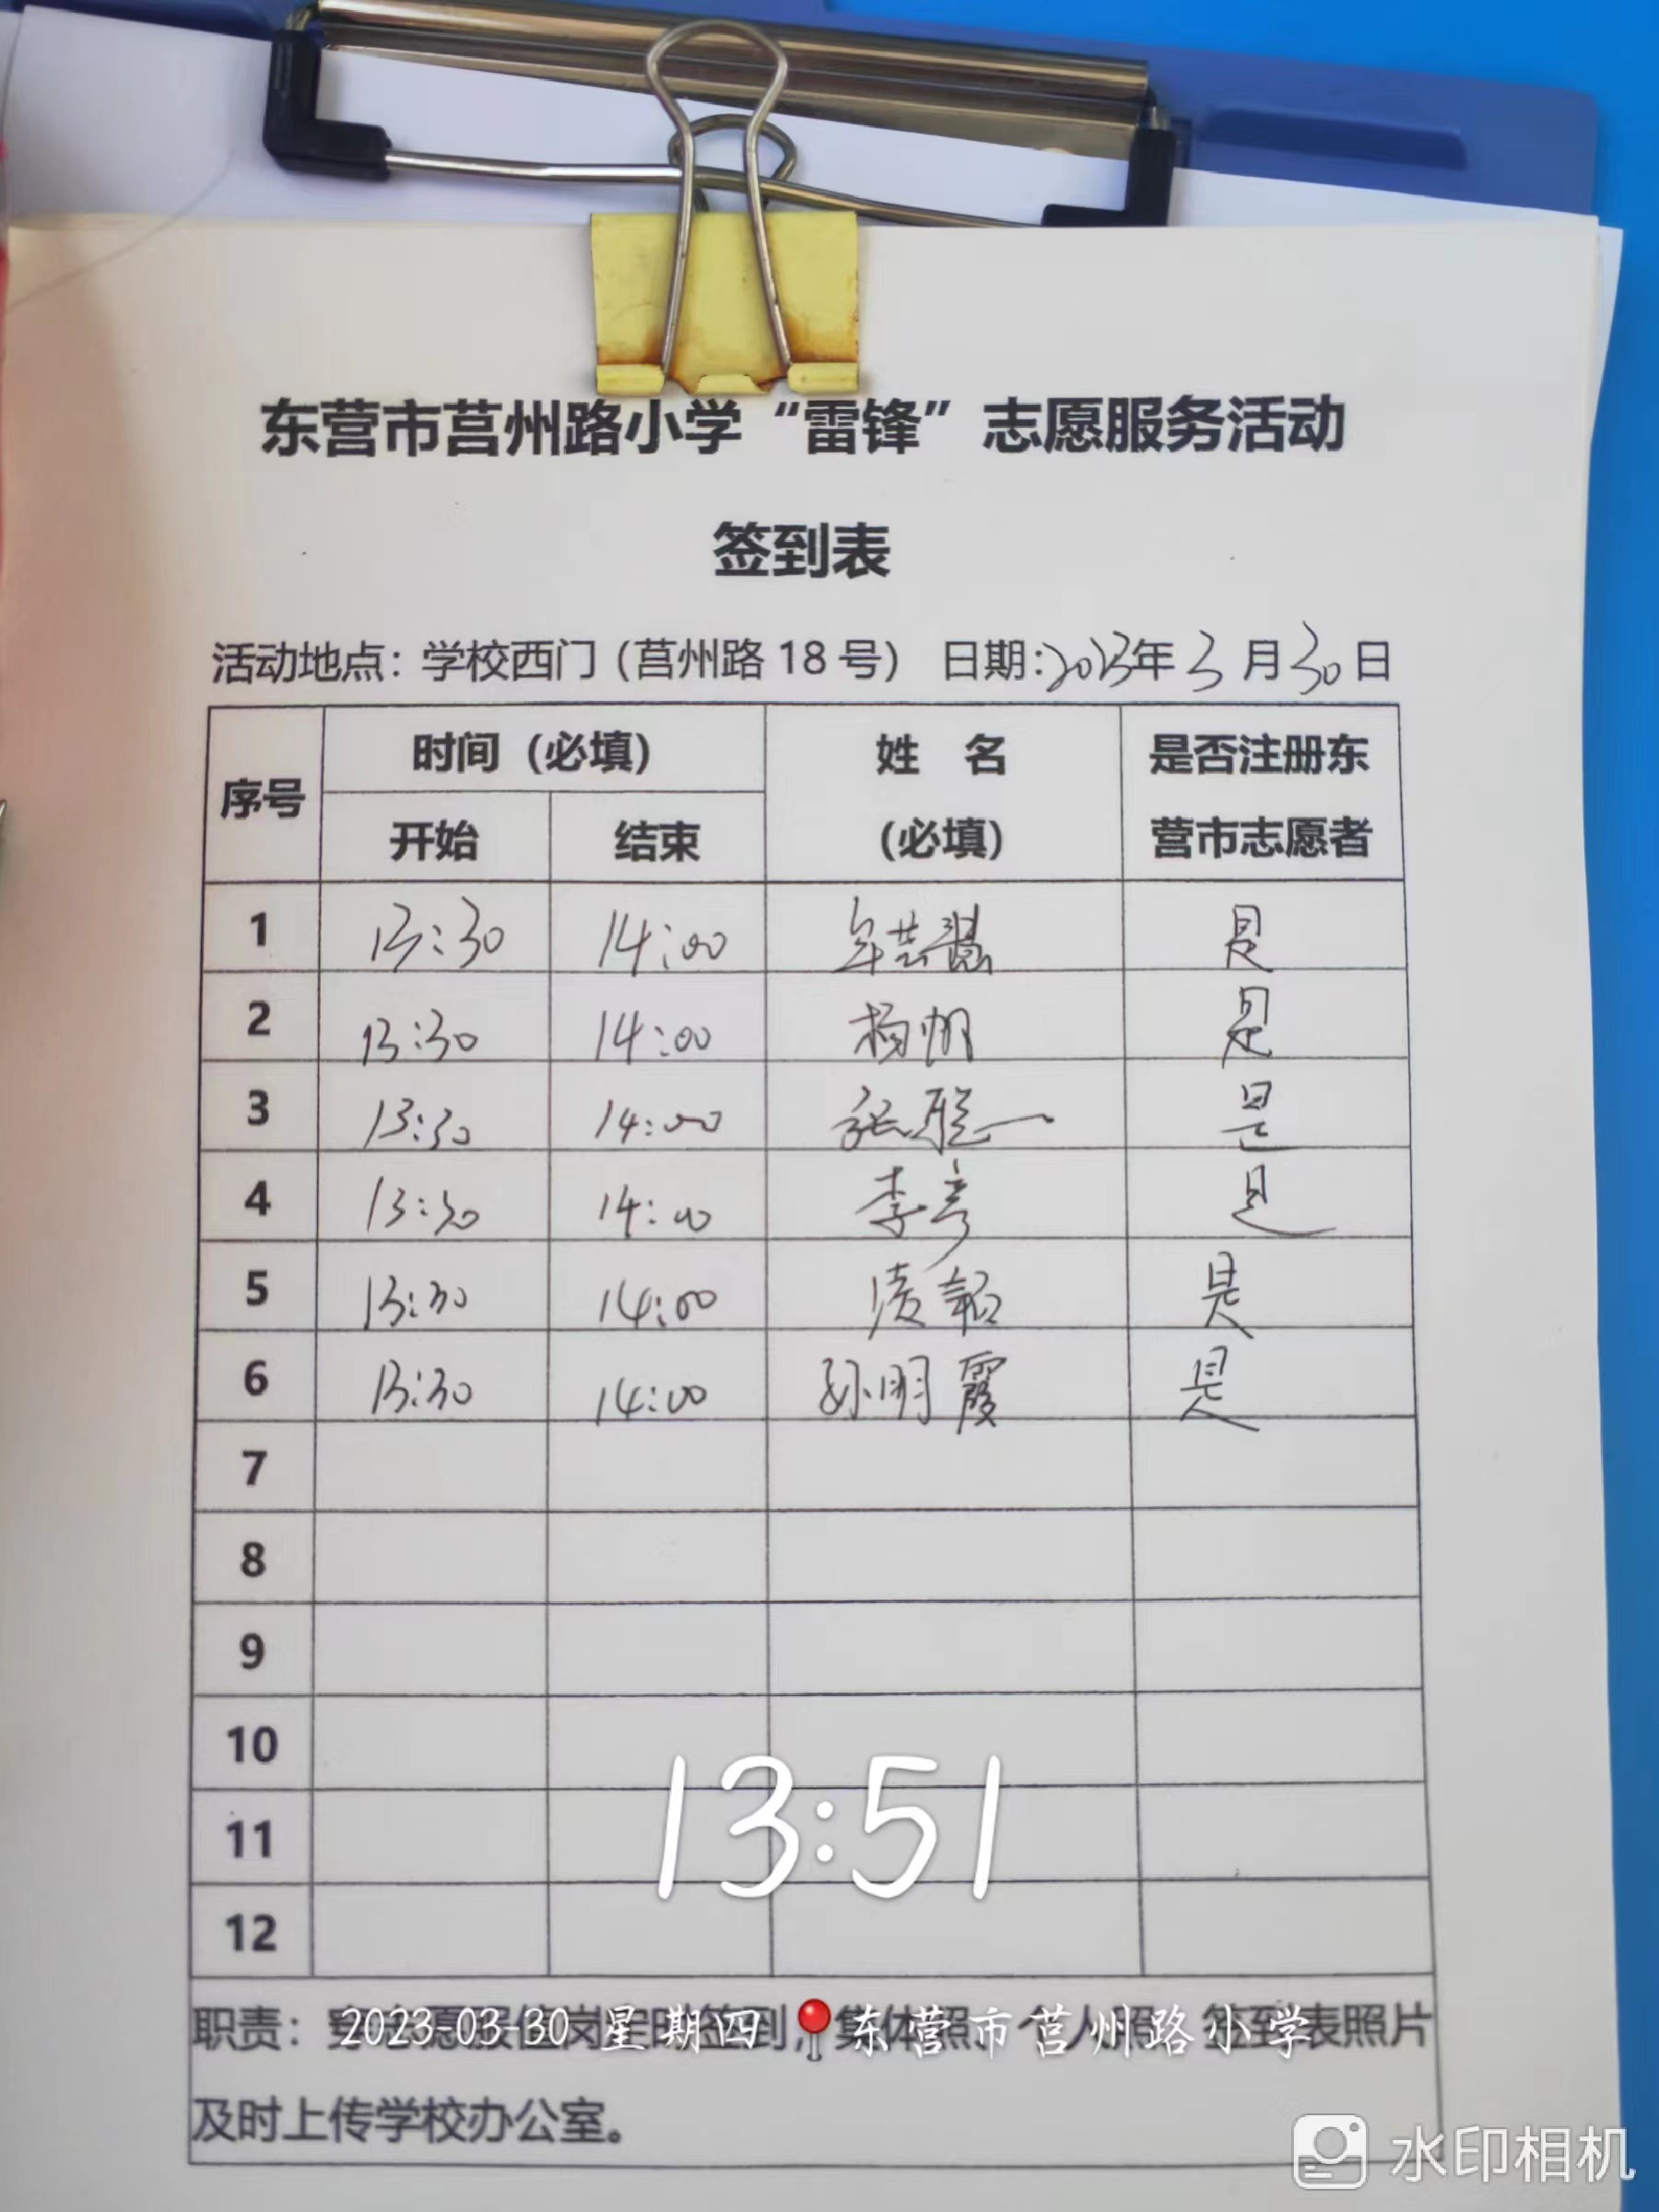 东营市莒州路小学“雷锋”志愿服务活动
签到表
活动地点：学校西门（莒州路18号） 日期：2023年3月30日
序号 时间（必填） 姓 名（必填） 是否注册东营市志愿者
开始 结束
1 13:30 14:00 是
2 13:30 14:00 杨帆 是
3 13:30 14:00 张聪一 是
4 13:30 14:00 李彦 是
5 13:30 14:00 凌韶 是
6 13:30 14:00 孙明霞 是
7
8
9
10
11
12
13:51
职责： 签到，集体照、个人照、签到表照片
2023-03-30 星期四 东营市莒州路小学
及时上传学校办公室。
水印相机